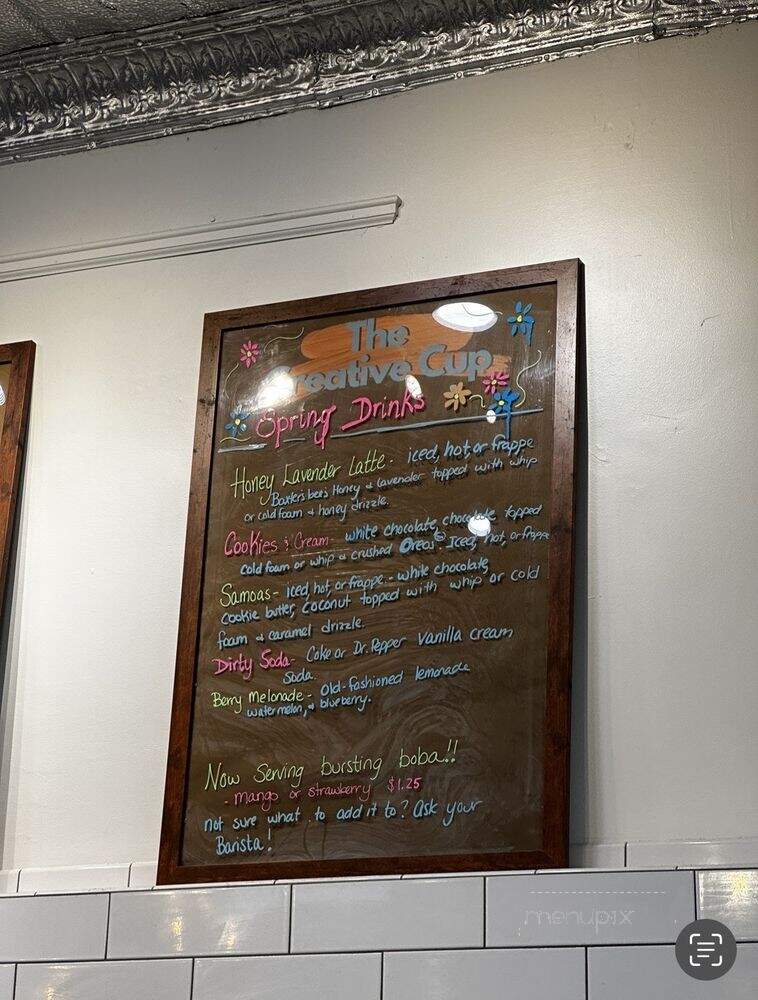 The
Creative Cup
Spring Drinks
Honey Lavender Latte - iced, hot, or frappe
Baxter's bees Honey & lavender topped with whip
or cold foam & honey drizzle.
Cookies & Cream - white chocolate, chocolate topped
cold foam or whip & crushed Oreos - Iced, hot, or frappe
Samoas - iced, hot, or frappe - white chocolate,
cookie butter, coconut topped with whip or cold
foam & caramel drizzle.
Dirty Soda - Coke or Dr. Pepper vanilla cream
soda.
Berry Melonade - old-fashioned lemonade
watermelon, & blueberry.
Now Serving bursting boba!!
- mango or strawberry $1.25
not sure what to add it to? ask your
Barista!
menupix